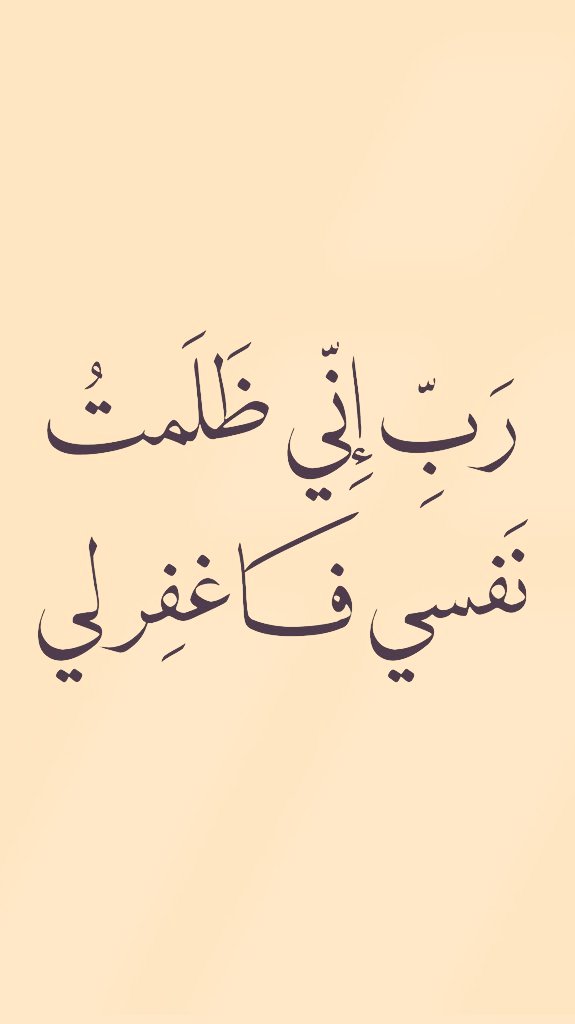 رَبِّ إِنِّي ظَلَمتُ
نَفسي فَاغفِر لي